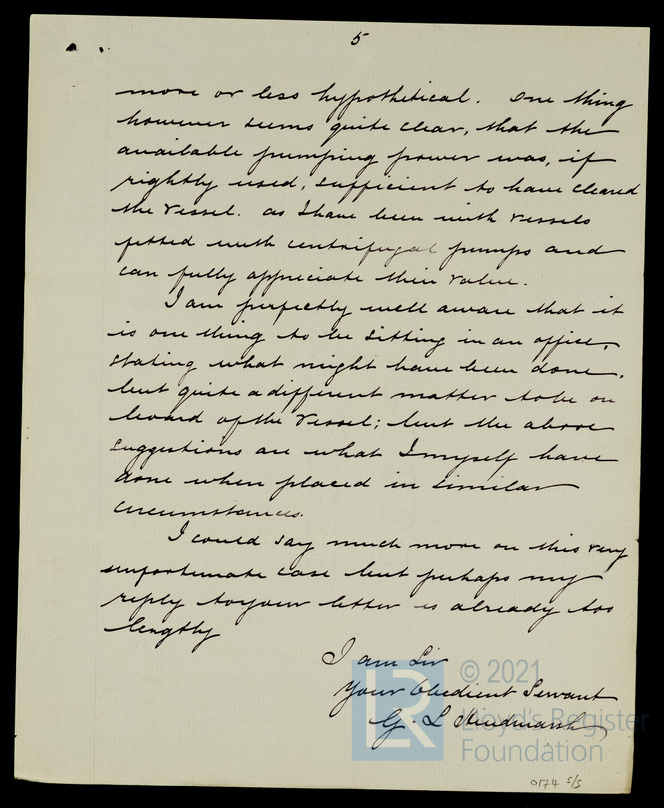 5
more or less hypothetical. One thing
however seems quite clear, that the
available pumping power was, if
rightly used, sufficient to have cleared
the vessel. as I have been with vessels
fitted with centrifugal pumps and
can fully appreciate their value.
I am perfectly well aware that it
is one thing to be sitting in an office,
stating what might have been done,
but quite a different matter to be on
board of the vessel; but the above
suggestions are what I myself have
done when placed in similar
circumstances.
I could say much more on this very
unfortunate case but perhaps my
reply to your letter is already too
lengthy
I am Sir
Your Obedient Servant
G. L Hindmarsh
LR © 2021
Lloyd's Register
Foundation
0174 5/5